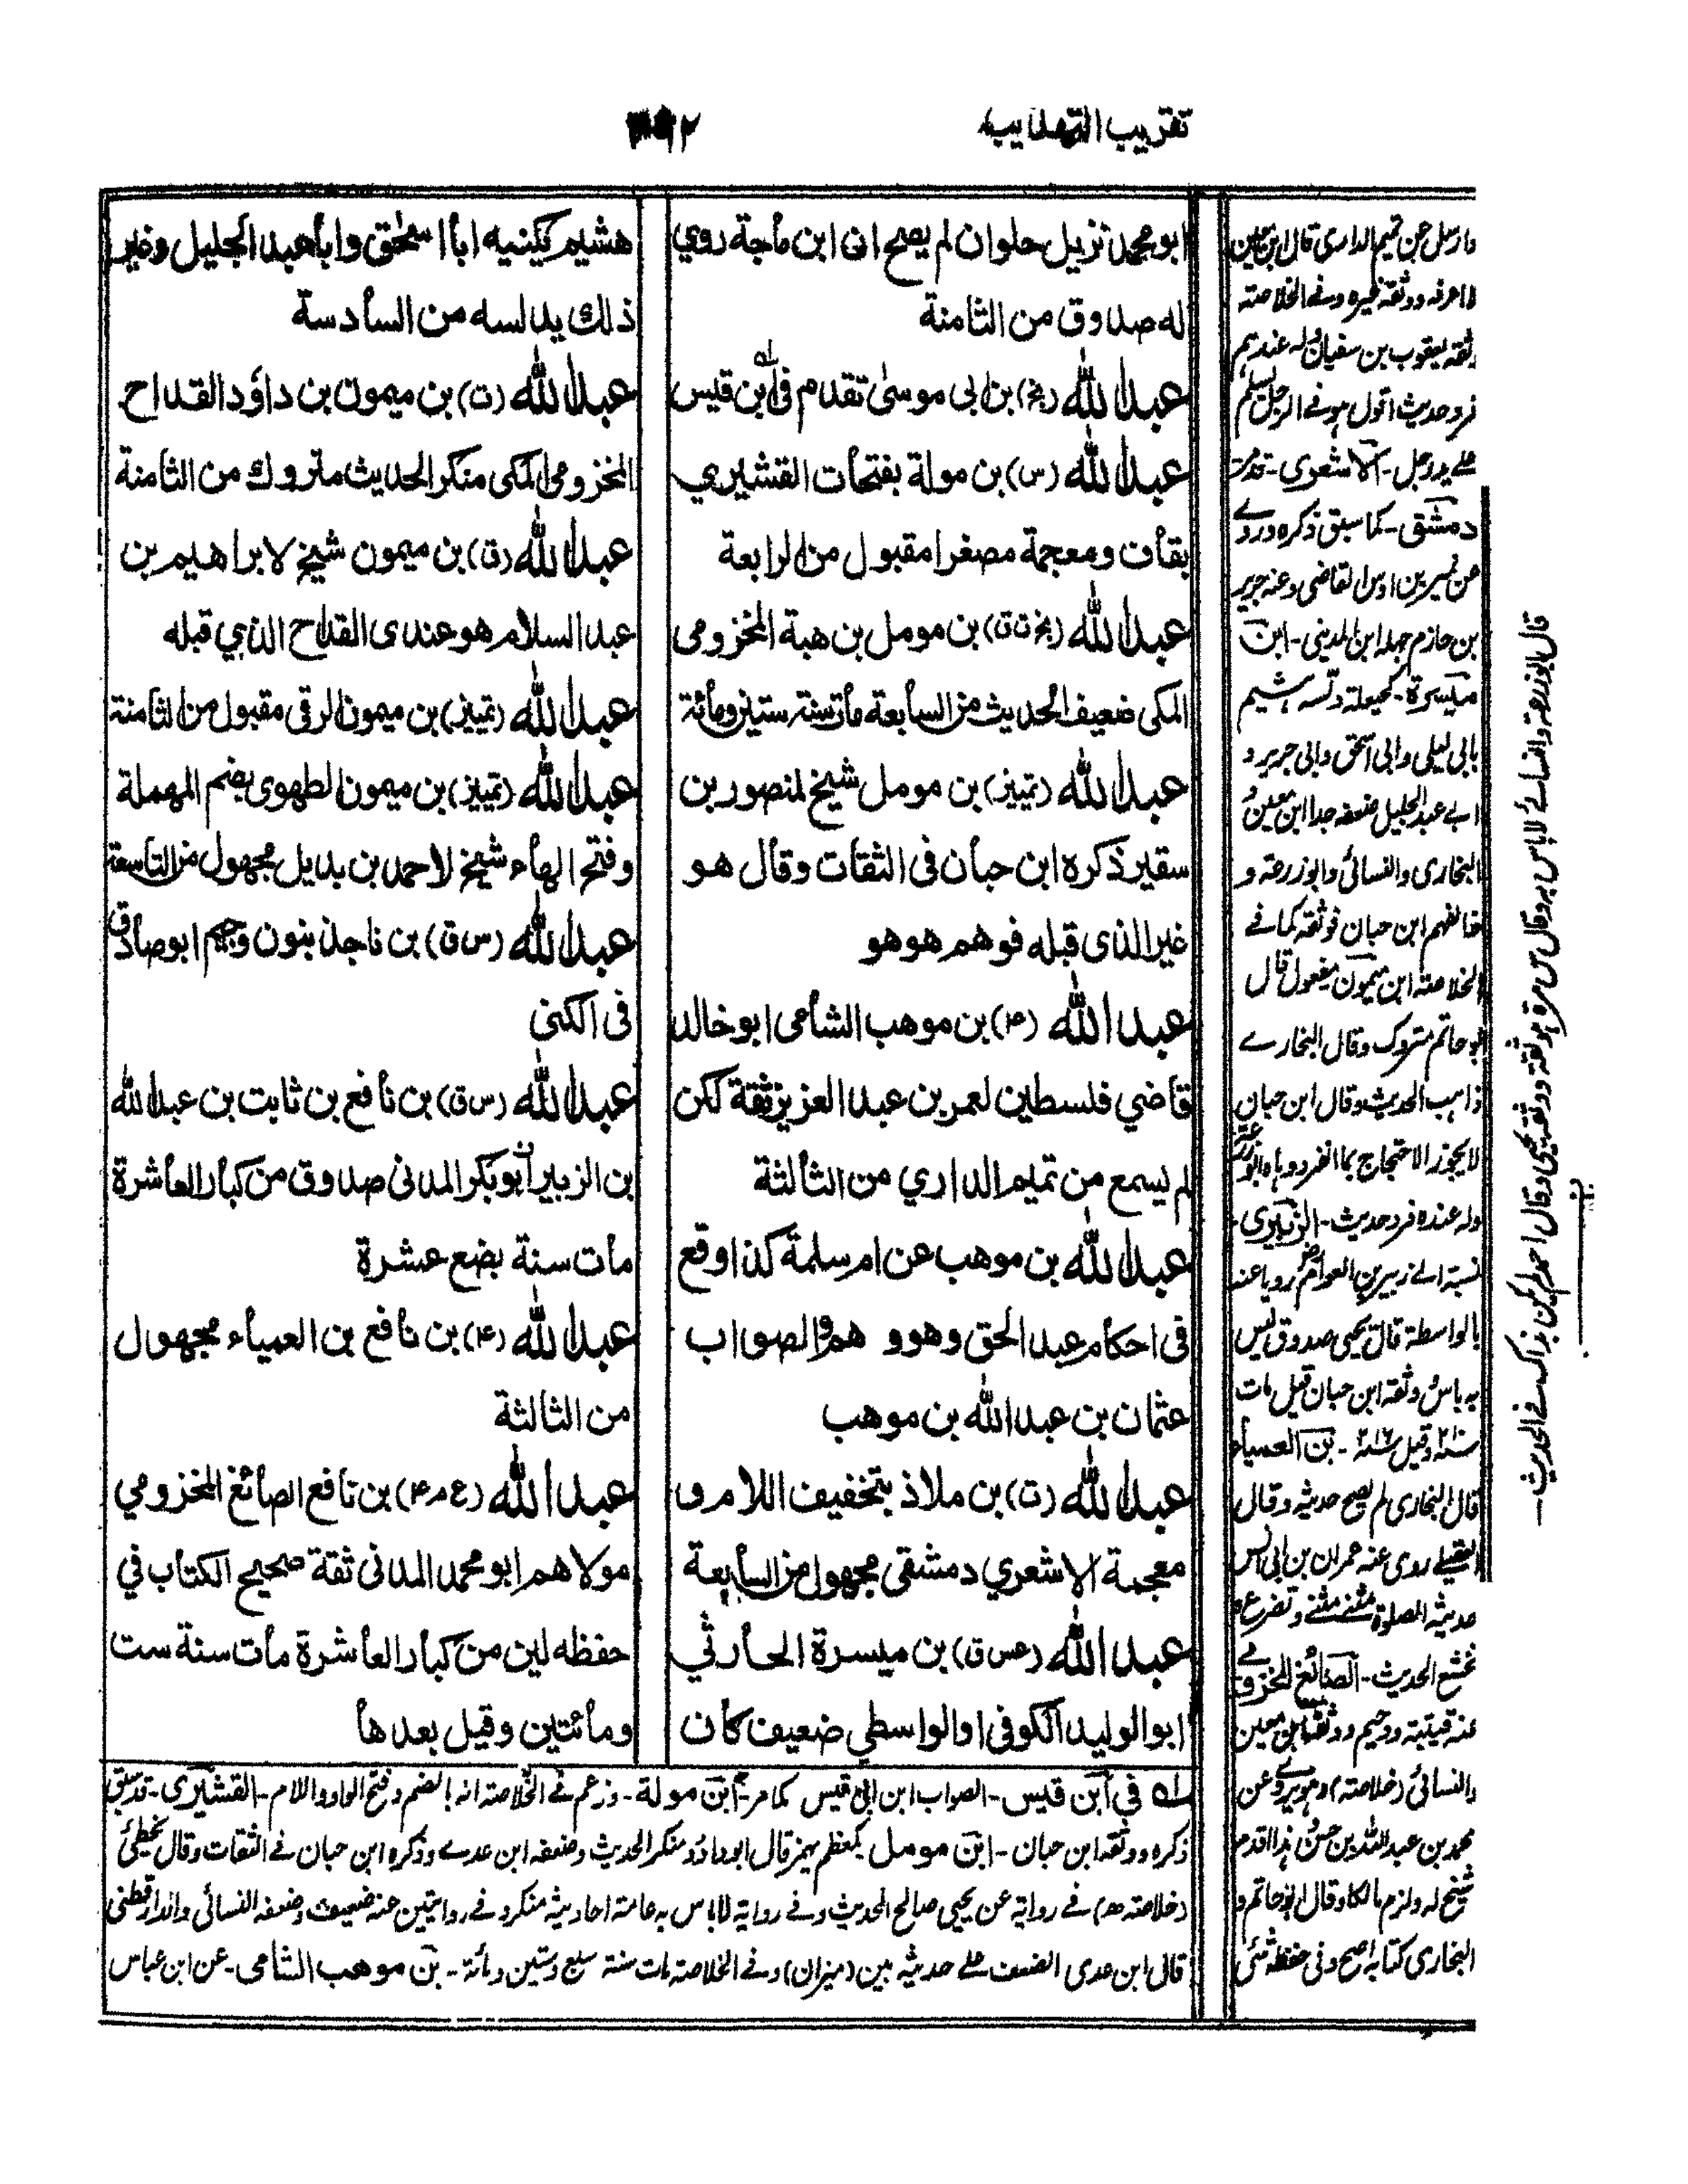 تقريب التهذيب
ابو محمد نزيل حلوان لم يصح ان ابن مأجة روي
له صدوق من الثامنة
عبد الله (بخ) بن ابى موسىٰ تقدم فى ابن قيس
عبد الله (س) بن مولة بفتحأت القشيري
بقأف ومعجمة مصغرا مقبول من الرابعة
عبد الله (بخ ت ق) بن مومل بن هبة المخزومى
المكى ضعيف الحديث من السأبعة مأت سنة ستين ومأئة
عبد الله (تمييز) بن مومل شيخ لمنصور بن
سقير ذكره ابن حبأن فى الثقات وقأل هو
غير الذى قبله فوهم هو هو
عبد الله (۴) بن موهب الشأمى ابو خالد
قأضي فلسطين لعمر بن عبد العزيز ثقة لكن
لم يسمع من تميم الداري من الثألثة
عبد الله بن موهب عن ام سلمة كذا وقع
فى احكام عبد الحق وهو وهم والصواب
عثمان بن عبد الله بن موهب
عبد الله (ت) بن ملاذ بتخفيف اللام و
معجمة الاشعري دمشقى مجهول من السأبعة
عبد الله (عس ق) بن ميسرة الحأرثي
ابو الوليد الكوفى او الواسطي ضعيف كأن
هشيم يكنيه ابأ اسحٰق وابأ عبد الجليل وغير
ذلك يدلسه من السأدسة
عبد الله (ت) بن ميمون بن داؤد القداح
المخزومى المكى منكر الحديث متروك من الثأمنة
عبد الله (ق) بن ميمون شيخ لابراهيم بن
عبد السلام هو عندى القداح الذي قبله
عبد الله (تمييز) بن ميمون الرقى مقبول من الثأمنة
عبد الله (تمييز) بن ميمون الطهوى بضم المهملة
وفتح الهأء شيخ لاحمد بن بديل مجهول من التأسعة
عبد الله (س ق) بن ناجذ بنون وجيم ابو صأدق
فى الكنى
عبد الله (س ق) بن نأفع بن ثابت بن عبد الله
بن الزبير ابو بكر المدنى صدوق من كبأر العأشرة
مأت سنة بضع عشرة
عبد الله (۴) بن نأفع بن العميأء مجهول
من الثالثة
عبد الله (بخ م ۴) بن نأفع الصأئغ المخزومي
مولاهم ابو محمد المدنى ثقة صحيح الكتأب في
حفظه لين من كبأر العأشرة مأت سنة ست
ومأئتين وقيل بعدهأ
وارسل عن تميم الدارى قال ابن معين
لا اعرفه ووثقه غيره وفى الخلاصة
ثقه يعقوب بن سفيان وله عندهم
فرد حديث اقول هو فى الرجل يسلم
على يد رجل - الاشعرى -
دمشقى - كما سبق ذكره وروى
عن نمير بن اوس القاضى وعنه جرير
بن حازم جهله ابن المدينى - ابن
ميسرة - دلسه هشيم
بابى ليلى وابى اسحق وابى جرير و
ابى عبد الجليل ضعفه جدا ابن معين و
البخارى والنسائى وابو زرعة و
خالفهم ابن حبان فوثقه كما فى
الخلاصة ابن ميمون مفعول قال
ابو حاتم متروك وقال البخارى
ذاهب الحديث وقال ابن حبان
لا يجوز الاحتجاج بما انفرد
وله عنده فرد حديث - الزبيرى -
نسبة الى زبير بن العوام رويا عنه
بالواسطة قال يحيى صدوق ليس
به باس وثقه ابن حبان قيل مات
وقيل - بن العمياء
قال البخارى لم يصح حديثه وقال
العقيلى روى عنه عمران بن ابى انس
حديثه الصلوة مثنى مثنى وتضرع
تخشع الحديث - الصائغ المخزومى
عنه قتيبة ودحيم ووثقه ابن معين
والنسائى (خلاصة) وهو يروى عن
محمد بن عبد الله بن حسن هذا اقدم
شيخ له ولزم مالكا وقال ابو حاتم و
البخارى كتابه اصح وفى حفظه شئى
قال ابو زرعة والنسائى لا باس به وقال س مرة هو ثقة ووثقه يحيى وقال احمد لم يكن بذاك فى الحديث -
له فى ابن قيس - الصواب ابن ابى قيس كما مر - ابن مولة - وزعم فى الخلاصة انه بالضم وفتح الواو واللام - القشيرى - قد سبق
ذكره ووثقه ابن حبان - ابن مومل كمعظم بهمز قال ابو داؤد منكر الحديث وضعفه ابن عدى وذكره ابن حبان فى الثقات وقال يخطئ
(خلاصة) فى رواية عن يحيى صالح الحديث وفى رواية لا باس به عامة احاديثه منكر وفى روايتين عنه ضعيف وضعفه النسائى والدارقطنى
قال ابن عدى الضعف على حديثه بين (ميزان) وفى الخلاصة مات سنة سبع وستين ومائة - بن موهب الشامى - عن ابن عباس